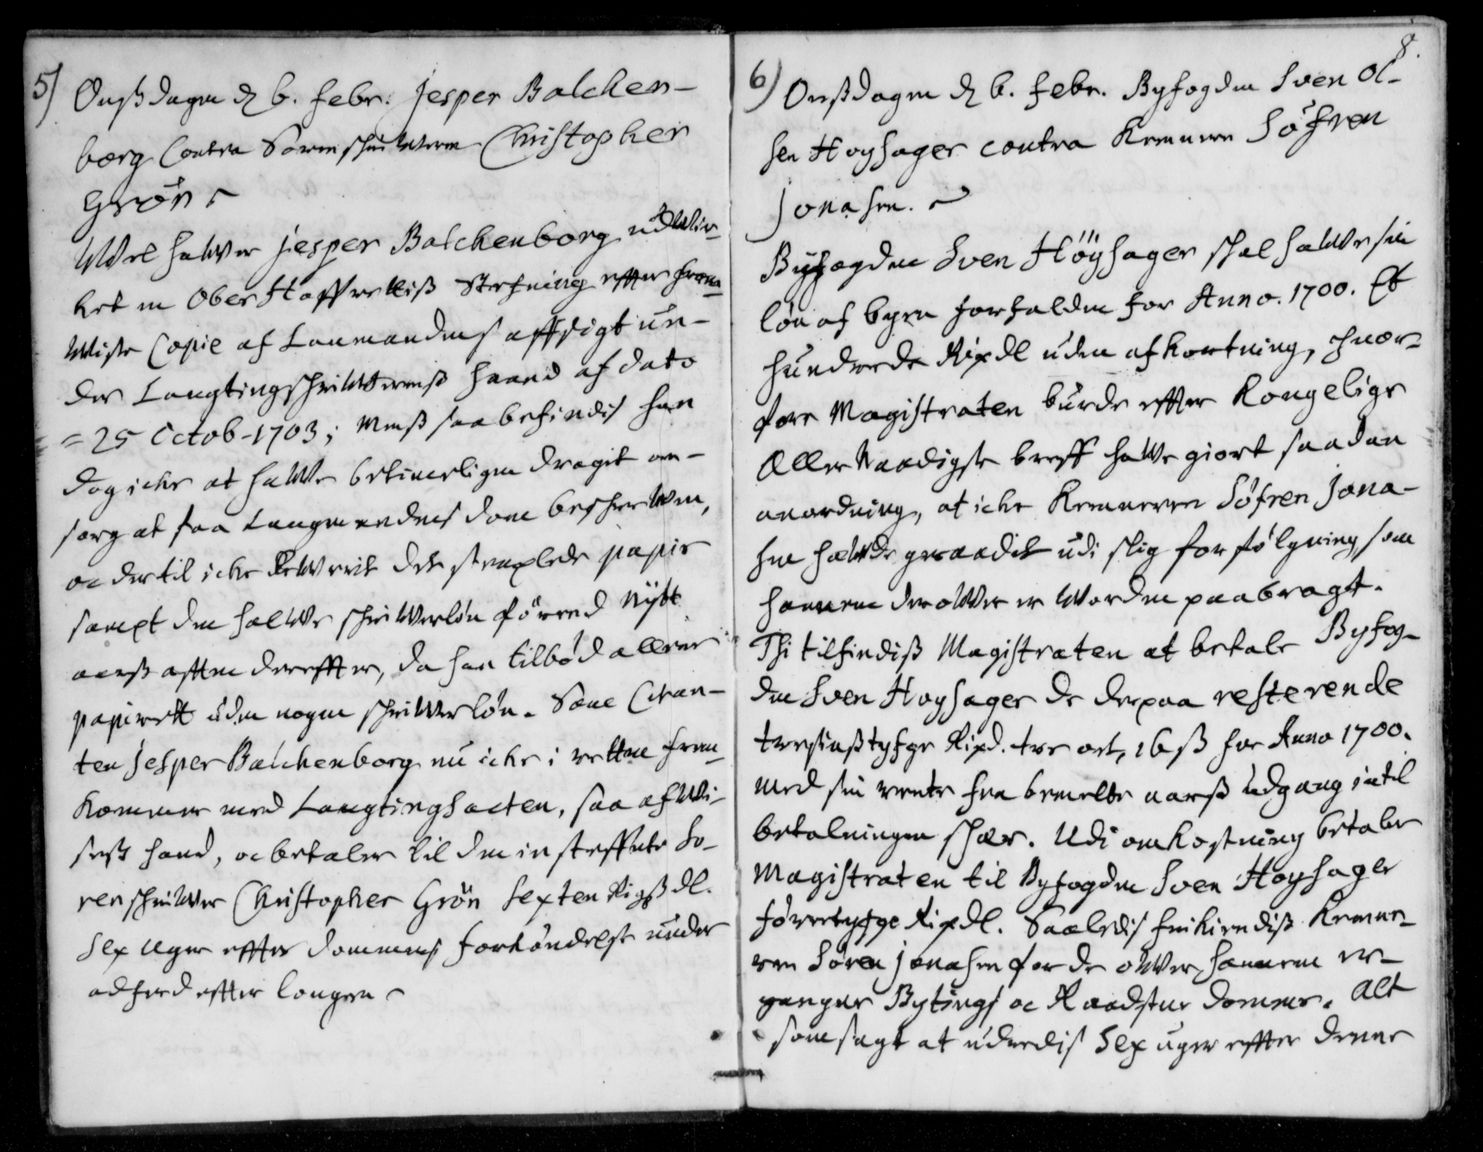 5) Onßdagen d 6. Febr: Jesper Balcken-
borg Contra Sorenschriweren Christopher
Grøn
Wel hawer Jesper Balckenborg udwir-
ket en Ober Hoffrettiß Stefning effter frem-
wiste Copie af Laumandens affsigt un-
der Laugtingschriwerenß haand af dato
= 25 Octob-1703; Menß saa befindis han
dog icke at hawe betimeligen dragit om-
sorg at faa Laugmandens dom beschrewen,
oc dertil icke lewerit det stemplede papir
sampt den halwe schriwerløn førend Nytt
aarß afften dereffter, da han tilbød allene
papiret uden nogen schriwerløn. Same Citan-
ten Jesper Balckenborg nu icke i retten frem-
kommer med Laugtingsacten, saa afwi-
seß hand, oc betaler til den insteffnte So-
renschriwer Christopher Grøn Sexten Rigßdl.
Sex Uger effter dommens forkøndelse under
adferd effter lougen
8.
6) Onßdagen d 6. Febr. Byfogden Sven Ol-
sen Høysager contra Kemneren Søfren
Jonasen.
Byfogden Sven Høysager skal hawe sin
løn af byen forfalden for Anno. 1700. Et
hunderde Rixdl uden afkortning, hwor-
fore Magistraten burde effter Kongelige
Aller Naadigste breff hawe giort saadan
anordning, at icke Kemneren Søfren Jona-
sen hawde geraadet udi slig forfølgning, som
hannem derower er worden paabragt.
Thi tilfindiß Magistraten at betale Byfog-
den Sven Høysager de derpaa resterende
tresinßtyfge Rixd. tre ort, 16 ß for Anno 1700.
med sin rente fra bemelte aarß udgang intil
betalningen skeer. Udi omkostning betaler
Magistraten til Byfogden Sven Høysager
førretyfge Rixdl. Saaledis frikiendiß Kemne-
ren Søren Jonasen for de ower hannem er-
gangne Bytings oc Raadstue domme. Alt
som sagt at udredis Sex uger effter denne